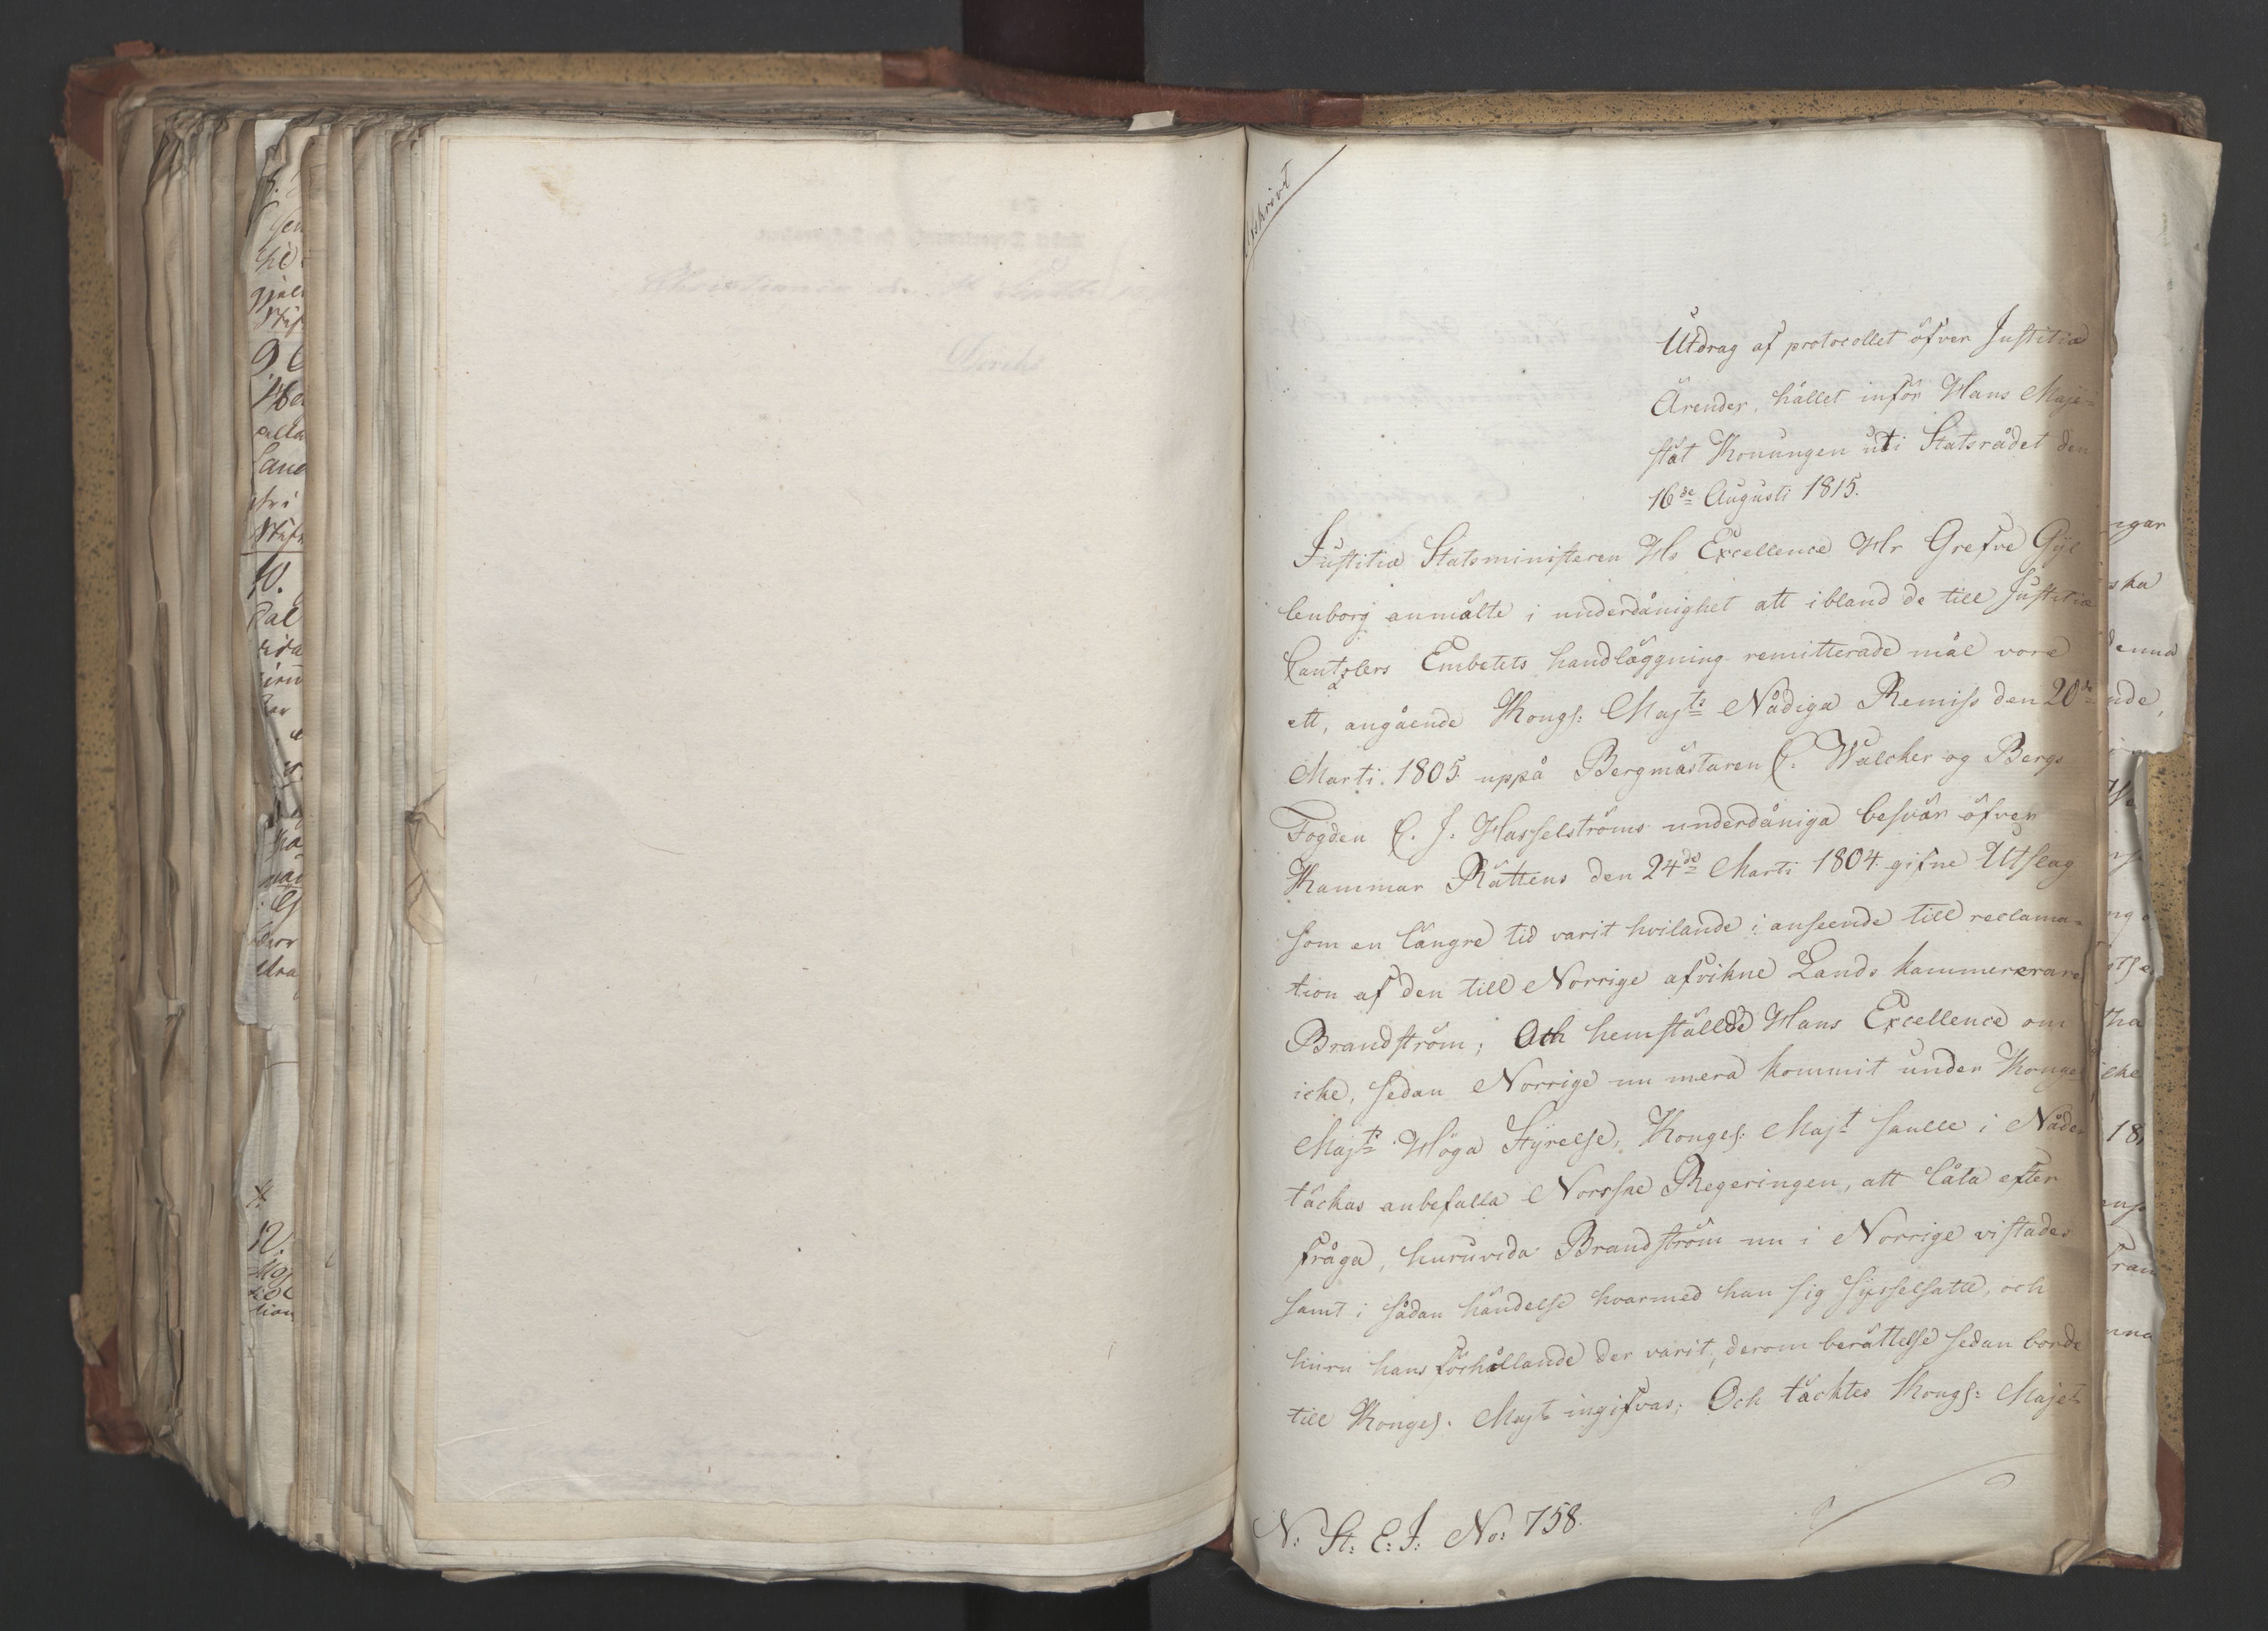 Afskrivt
Utdrag af protocollet öfver Justitiæ
Ärender, hållet inför Hans Maje-
stät Konungen uti Statsrådet den
16de Augusti 1815.
Justitiæ Statsministeren Hs Excellence Hr Grefve Gyl
lenborg anmälte i underdånighet att ibland de till Justitiæ
Cantzlers Embetets handläggning remitterade mål vore
ett, angående Kongl: Majts Nådiga Remiss den 20de
Marti. 1805. uppå Bergmästaren C. Walcker og Bergs
Fogden C. J. Hasselströms underdåniga besvär öfver
Kammar Rättens den 24de Marti 1804. gifne Utslag
som en längre tid varit hvilande i anseende till reclama-
tion af den till Norrige afvikne Lands kammererare
Brandström; Och hemställde Hans Excellence om
icke, sedan Norrige nu mera kommit under Konge
Majts Höga Styrelse, Kongel: Majt skulle i Nåde
täckas anbefalla Norsske Regeringen, att låta efter
fråga, huruvida Brandström nu i Norrige vistades
samt i sådan händelse hvarmed han sig sysselsatte, och
huru hans förhållande der varit, derom berättelse sedan borde
till Kongel. Majt ingifvas; Och täcktes Kongl: Majet
N: St: E: J: No: 758.